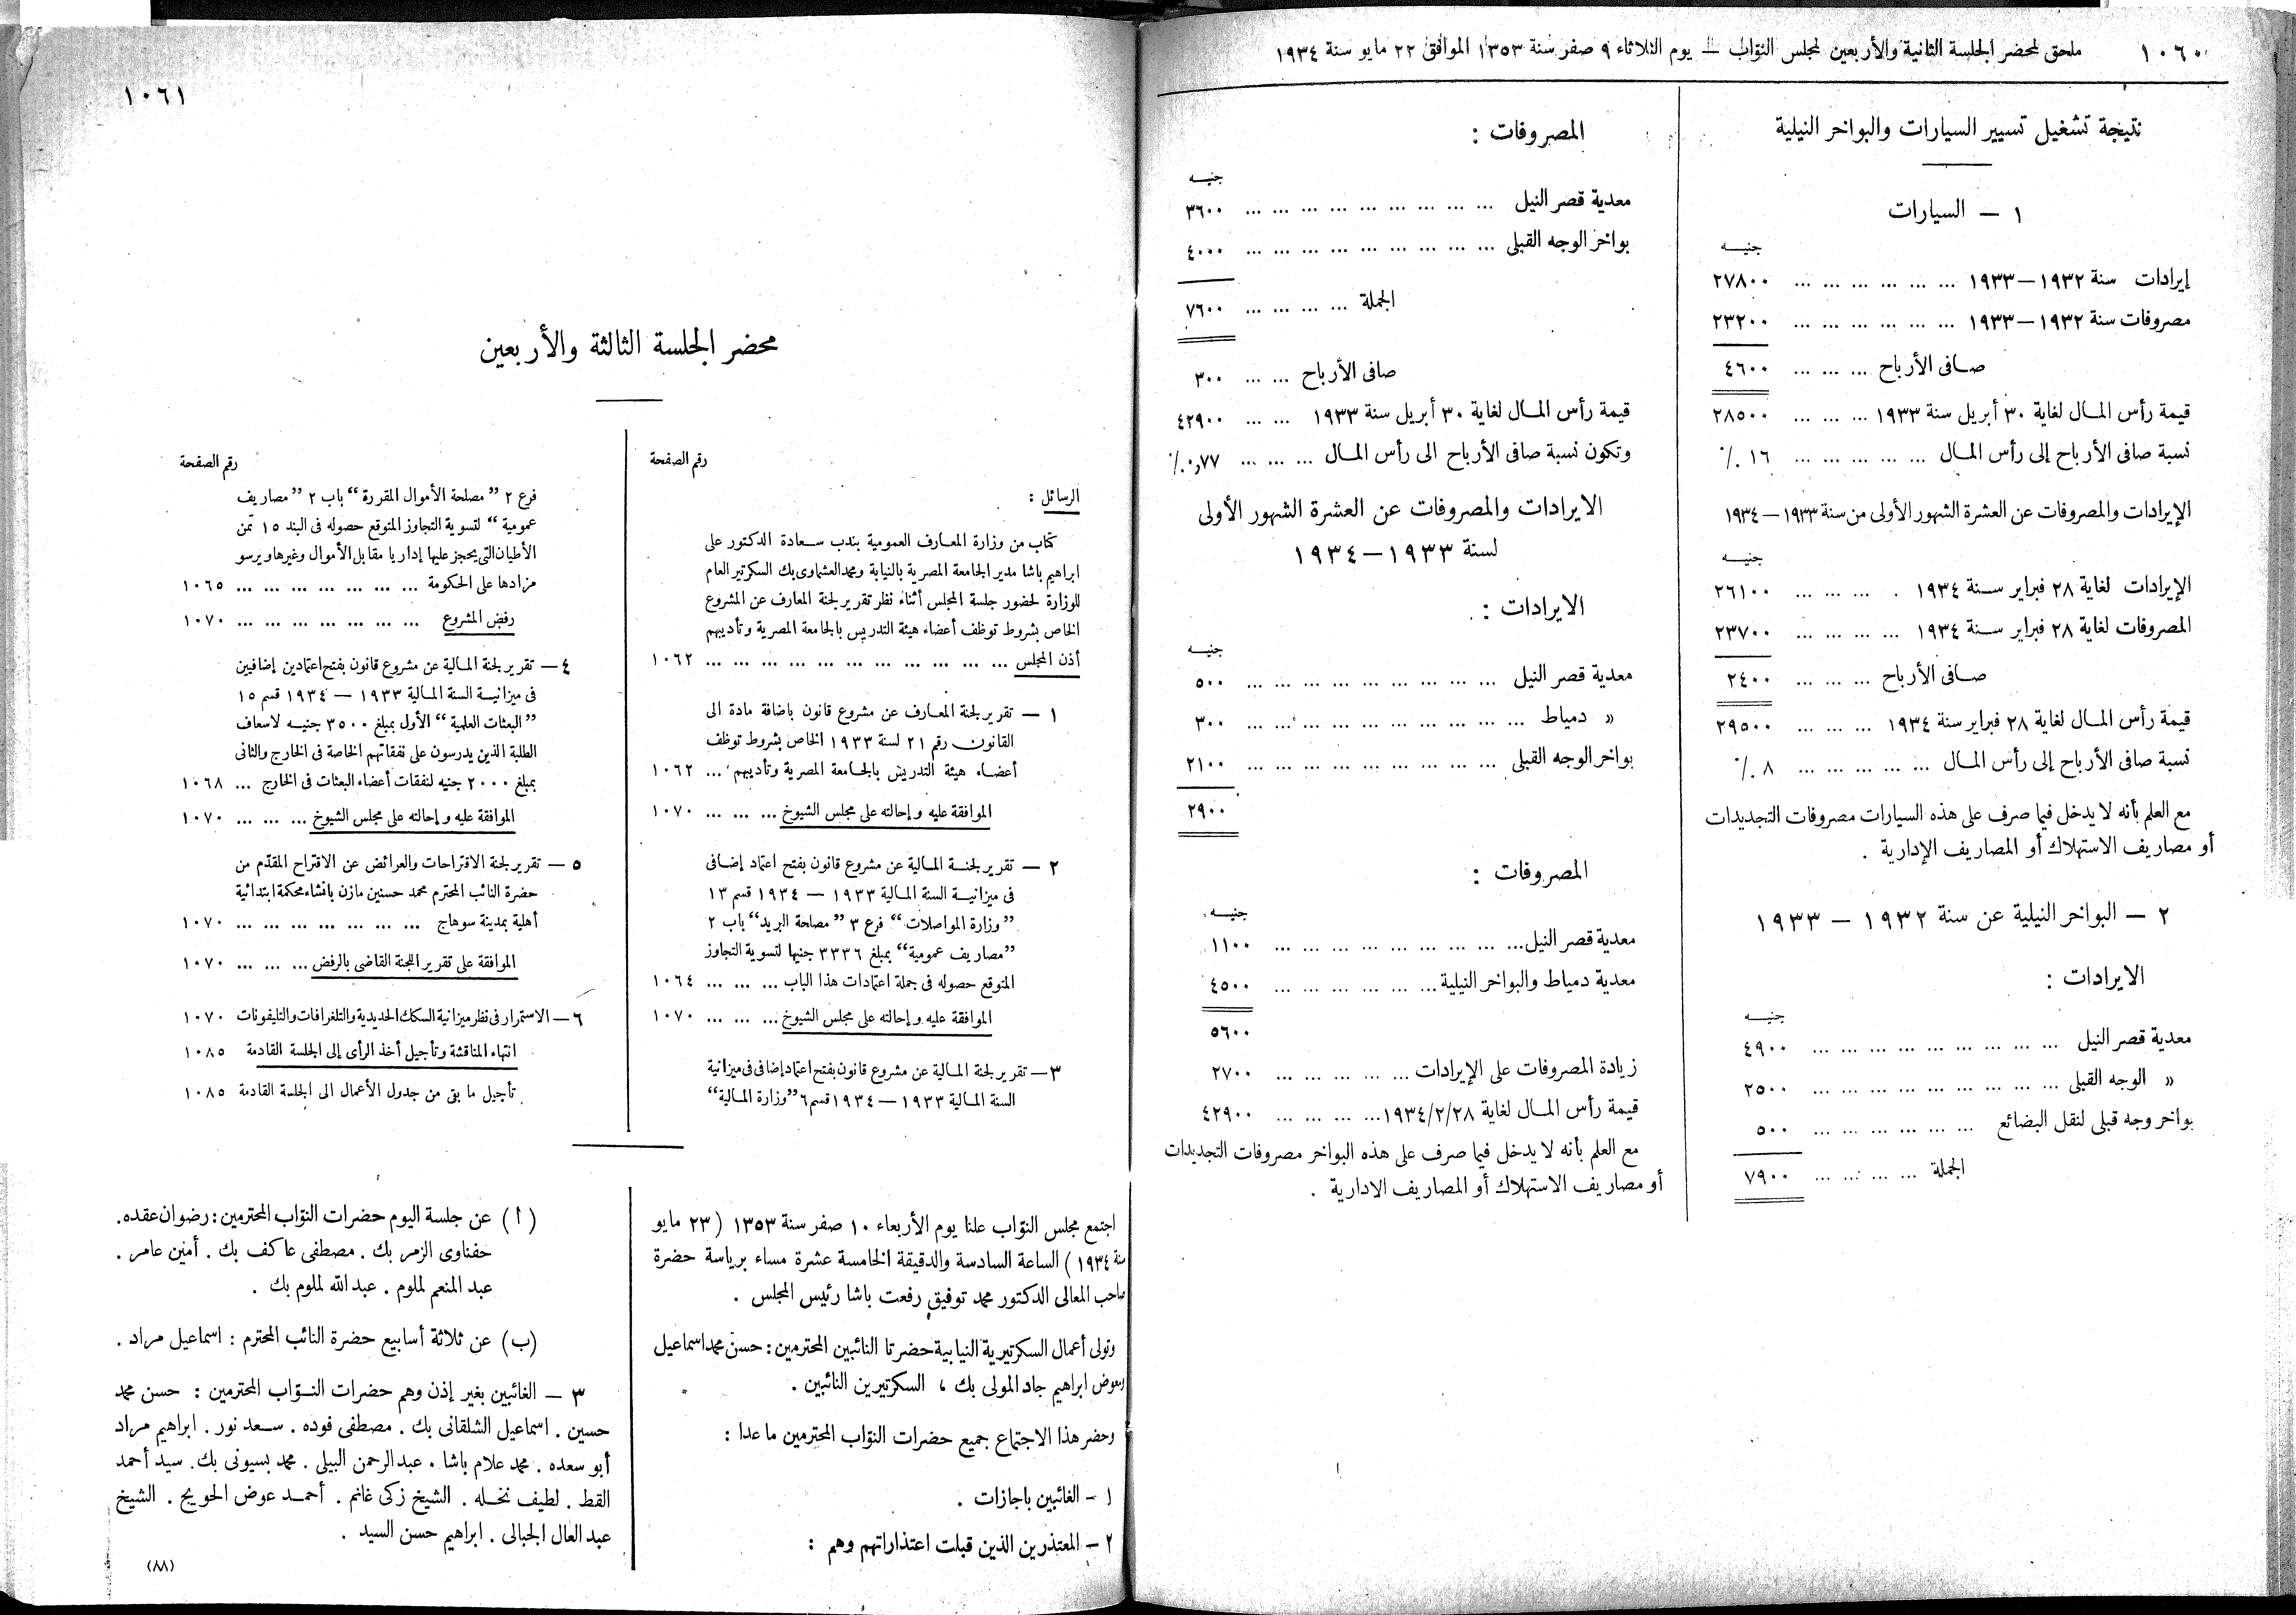 ١٠٦٠ ملحق لمحضر الجلسة الثانية والأربعين لمجلس النوّاب — يوم الثلاثاء ٩ صفر سنة ١٣٥٣ الموافق ٢٢ مايو سنة ١٩٣٤
نتيجة تشغيل تسيير السيارات والبواخر النيلية
١ — السيارات
جنيــه
إيرادات سنة ١٩٣٢—١٩٣٣ ... ... ... ... ... ... ٢٧٨٠٠
مصروفات سنة ١٩٣٢—١٩٣٣ ... ... ... ... ... ... ٢٣٢٠٠
صـافى الأرباح ... ... ... ٤٦٠٠
قيمة رأس المـال لغاية ٣٠ أبريل سنة ١٩٣٣ ... ... ... ٢٨٥٠٠
نسبة صافى الأرباح إلى رأس المـال ... ... ... ... ... ١٦ ٪
الإيرادات والمصروفات عن العشرة الشهور الأولى من سنة ١٩٣٣—١٩٣٤
جنيــه
الإيرادات لغاية ٢٨ فبراير سـنة ١٩٣٤ . ... ... ... ٢٦١٠٠
المصروفات لغاية ٢٨ فبراير سـنة ١٩٣٤ ... ... ... ... ٢٣٧٠٠
صـافى الأرباح ... ... ... ٢٤٠٠
قيمة رأس المـال لغاية ٢٨ فبراير سنة ١٩٣٤ ... ... ... ٢٩٥٠٠
نسبة صافى الأرباح إلى رأس المـال ... ... ... ... ... ٨ ٪
مع العلم بأنه لا يدخل فيما صرف على هذه السيارات مصروفات التجديدات
أو مصاريف الاستهلاك أو المصاريف الإدارية .
٢ — البواخر النيلية عن سنة ١٩٣٢ — ١٩٣٣
الايرادات :
جنيــه
معدية قصر النيل ... ... ... ... ... ... ... ... ... ٤٩٠٠
» الوجه القبلى ... ... ... ... ... ... ... ... ... ٢٥٠٠
بواخر وجه قبلى لنقل البضائع ... ... ... ... ... ... ٥٠٠
الجملة ... ... ... ... ٧٩٠٠
المصروفات :
جنيــه
معدية قصر النيل ... ... ... ... ... ... ... ... ... ٣٦٠٠
بواخر الوجه القبلى ... ... ... ... ... ... ... ... ... ٤٠٠٠
الجملة ... ... ... ... ٧٦٠٠
صافى الأرباح ... ... ٣٠٠
قيمة رأس المـال لغاية ٣٠ أبريل سنة ١٩٣٣ ... ... ٤٢٩٠٠
وتكون نسبة صافى الأرباح الى رأس المـال ... ... ... ٠٫٧٧ ٪
الايرادات والمصروفات عن العشرة الشهور الأولى
لسنة ١٩٣٣—١٩٣٤
الايرادات :
جنيــه
معدية قصر النيل ... ... ... ... ... ... ... ... ... ٥٠٠
» دمياط ... ... ... ... ... ... ... ... ... ... ٣٠٠
بواخر الوجه القبلى ... ... ... ... ... ... ... ... ... ٢١٠٠
٢٩٠٠
المصروفات :
جنيــه
معدية قصر النيل ... ... ... ... ... ... ... ... ... ١١٠٠
معدية دمياط والبواخر النيلية ... ... ... ... ... ... ٤٥٠٠
٥٦٠٠
زيادة المصروفات على الإيرادات ... ... ... ... ... ٢٧٠٠
قيمة رأس المـال لغاية ١٩٣٤/٢/٢٨ ... ... ... ... ... ٤٢٩٠٠
مع العلم بأنه لا يدخل فيما صرف على هذه البواخر مصروفات التجديدات
أو مصاريف الاستهلاك أو المصاريف الادارية .
١٠٦١
محضر الجلسة الثالثة والأربعين
رقم الصفحة
الرسائل :
كتاب من وزارة المعـارف العمومية بندب سـعادة الدكتور على
ابراهيم باشا مدير الجامعة المصرية بالنيابة ومحمد العشماوى بك السكرتير العام
للوزارة لحضور جلسة المجلس أثناء نظر تقرير لجنة المعارف عن المشروع
الخاص بشروط توظف أعضاء هيئة التدريس بالجامعة المصرية وتأديبهم
أذن المجلس ... ... ... ... ... ... ... ... ... ... ١٠٦٢
١ — تقرير لجنة المعـارف عن مشروع قانون باضافة مادة الى
القانون رقم ٢١ لسنة ١٩٣٣ الخاص بشروط توظف
أعضـاء هيئة التدريس بالجـامعة المصرية وتأديبهم ... ١٠٦٢
الموافقة عليه وإحالته على مجلس الشيوخ ... ... ... ١٠٧٠
٢ — تقرير لجنـة المـالية عن مشروع قانون بفتح اعتماد إضـافى
فى ميزانيـة السنة المـالية ١٩٣٣ — ١٩٣٤ قسم ١٣
”وزارة المواصلات“ فرع ٣ ”مصلحة البريد“ باب ٢
”مصاريف عمومية“ بمبلغ ٣٣٣٦ جنيها لتسوية التجاوز
المتوقع حصوله فى جملة اعتمادات هذا الباب ... ... ... ١٠٦٤
الموافقة عليه وإحالته على مجلس الشيوخ ... ... ... ١٠٧٠
٣ — تقرير لجنة المـالية عن مشروع قانون بفتح اعتماد إضافى فى ميزانية
السنة المـالية ١٩٣٣ — ١٩٣٤ قسم ٦ ”وزارة المـالية“
رقم الصفحة
فرع ٢ ”مصلحة الأموال المقررة“ باب ٢ ”مصاريف
عمومية“ لتسوية التجاوز المتوقع حصوله فى البند ١٥ ثمن
الأطيان التى يحجز عليها إداريا مقابل الأموال وغيرها ويرسو
مزادها على الحكومة ... ... ... ... ... ... ... ١٠٦٥
رفض المشروع ... ... ... ... ... ... ... ١٠٧٠
٤ — تقرير لجنة المـالية عن مشروع قانون بفتح اعتمادين إضافيين
فى ميزانيـة السنة المـالية ١٩٣٣ — ١٩٣٤ قسم ١٥
”البعثات العلمية“ الأول بمبلغ ٣٥٠٠ جنيـه لاسعاف
الطلبة الذين يدرسون على نفقاتهم الخاصة فى الخارج والثانى
بمبلغ ٢٠٠٠ جنيه لنفقات أعضاء البعثات فى الخارج ... ١٠٦٨
الموافقة عليه وإحالته على مجلس الشيوخ ... ... ... ١٠٧٠
٥ — تقرير لجنة الاقتراحات والعرائض عن الاقتراح المقدّم من
حضرة النائب المحترم محمد حسنين مازن بانشاء محكمة ابتدائية
أهلية بمدينة سوهاج ... ... ... ... ... ... ... ١٠٧٠
الموافقة على تقرير اللجنة القاضى بالرفض ... ... ... ١٠٧٠
٦ — الاستمرار فى نظر ميزانية السكك الحديدية والتلغرافات والتليفونات ١٠٧٠
انتهاء المناقشة وتأجيل أخذ الرأى إلى الجلسة القادمة ١٠٨٥
تأجيل ما بقى من جدول الأعمال الى الجلسة القادمة ١٠٨٥
اجتمع مجلس النوّاب علنا يوم الأربعاء ١٠ صفر سنة ١٣٥٣ (٢٣ مايو
سنة ١٩٣٤) الساعة السادسة والدقيقة الخامسة عشرة مساء برياسة حضرة
صاحب المعالى الدكتور محمد توفيق رفعت باشا رئيس المجلس .
وتولى أعمال السكرتيرية النيابية حضرتا النائبين المحترمين : حسن محمد اسماعيل
ومعوض ابراهيم جاد المولى بك ، السكرتيرين النائبين .
وحضر هذا الاجتماع جميع حضرات النوّاب المحترمين ما عدا :
١ — الغائبين باجازات .
٢ — المعتذرين الذين قبلت اعتذاراتهم وهم :
(أ) عن جلسة اليوم حضرات النوّاب المحترمين : رضوان عقده .
حفناوى الزمر بك . مصطفى عاكف بك . أمين عامر .
عبد المنعم لملوم . عبد الله لملوم بك .
(ب) عن ثلاثة أسابيع حضرة النائب المحترم : اسماعيل مراد .
٣ — الغائبين بغير إذن وهم حضرات النـوّاب المحترمين : حسن محمد
حسين . اسماعيل الشلقانى بك . مصطفى فوده . سـعد نور . ابراهيم مراد
أبو سعده . محمد علام باشا . عبد الرحمن البيلى . محمد بسيونى بك . سيد أحمد
القط . لطيف نخـله . الشيخ زكى غانم . أحمـد عوض الحويج . الشيخ
عبد العال الجبالى . ابراهيم حسن السيد .
(٨٨)